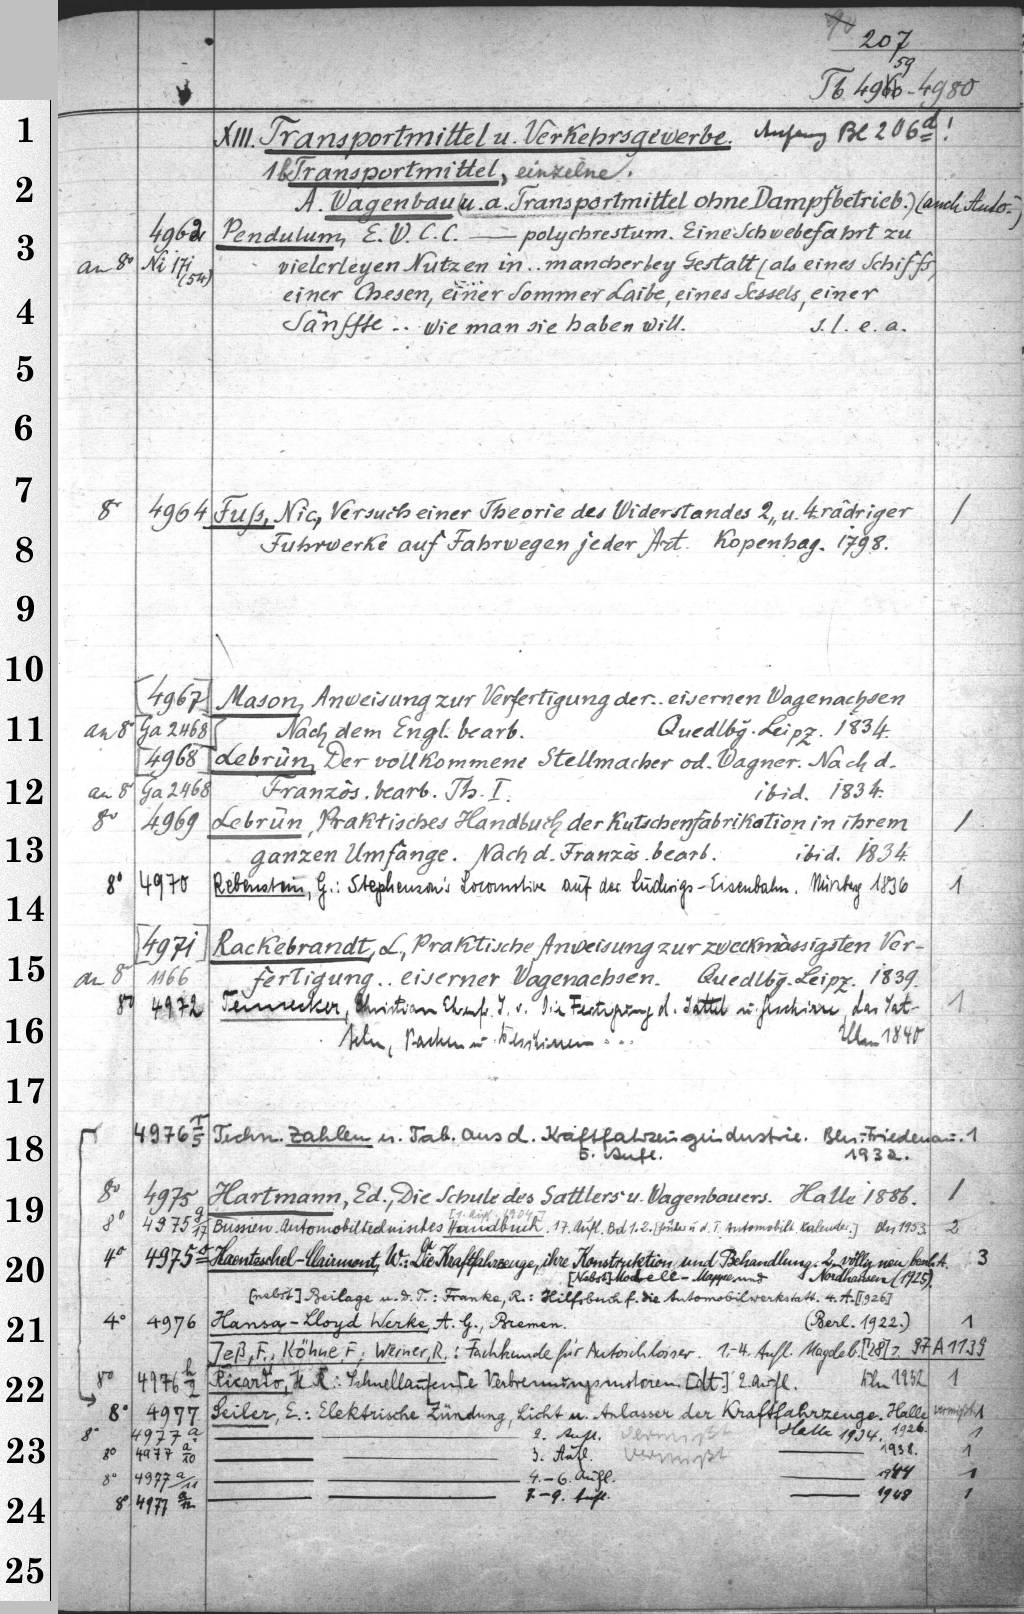 207
59
Tb 4960-4980
XIII. Transportmittel u. Verkehrsgewerbe. Anfang Bl 206d!
1b Transportmittel, einzelne.
A. Wagenbau (u. a. Transportmittel ohne Dampfbetrieb.) (auch Auto-)
4962 Pendulum, E. W. C. C. — polychrestum. Eine Schwebefahrt zu
an 8° Ni 171 (54) vielerleyen Nutzen in .. mancherley Gestalt (als eines Schiffs,
einer Chesen, einer Sommer Laibe, eines Sessels, einer
Sänffte .. wie man sie haben will. s. l. e. a.
8° 4964 Fuß, Nic, Versuch einer Theorie des Widerstandes 2,, u. 4rädriger 1
Fuhrwerke auf Fahrwegen jeder Art. Kopenhag. 1798.
[4967] Mason, Anweisung zur Verfertigung der .. eisernen Wagenachsen
an 8° Ga 2468 Nach dem Engl. bearb. Quedlbg. Leipz. 1834.
[4968] Lebrün, Der vollkommene Stellmacher od. Wagner. Nach d.
an 8 Ga 2468 Französ. bearb. Th. I. ibid. 1834.
8° 4969 Lebrün, Praktisches Handbuch der Kutschenfabrikation in ihrem 1
ganzen Umfange. Nach d. Französ. bearb. ibid. 1834.
8° 4970 Rebenstein, G.: Stephenson's Locomotive auf der Ludwigs-Eisenbahn. Nürnberg 1836 1
[4971] Rackebrandt, L, Praktische Anweisung zur zweckmässigsten Ver-
an 8° 1166 fertigung .. eiserner Wagenachsen. Quedlbg. Leipz. 1839.
8° 4972 Tennecker, Christian Ehrenfr. S. v. Die Fertigung d. Sattel u. Geschirre, das Sat-
1
teln, Packen u. Beschirren ... Ulm 1840
4976 T/5 Techn. Zahlen u. Tab. aus d. Kraftfahrzeugindustrie. Bln.-Friedenau. 1
5. Aufl. 1932.
8° 4975 Hartmann, Ed., Die Schule des Sattlers u. Wagenbauers. Halle 1886. 1
[1. Aufl. 1904]
8° 4975 g/17 Bussien. Automobiltechnisches Handbuch. 17. Aufl. Bd 1.2. [früher u. d. T. Automobilt. Kalender.] Bln 1953 2
4° 4975 Haentzschel-Clairmont, W.: Die Kraftfahrzeuge, ihre Konstruktion und Behandlung. 2. völlig neu bearb. A. 3
[Nebst] Modell-Mappe und Nordhausen (1925).
[nebst] Beilage u. d. T.: Franke, R.: Hilfsbuch f. die Automobilwerkstatt. 4. A. [1926]
4° 4976 Hansa-Lloyd Werke, A. G., Bremen. (Berl. 1922.) 1
Jeß, F., Köhne, F., Werner, R.: Fachkunde für Autoschlosser. 1.-4. Aufl. Magdeb. [28] 97 A 1139
8° 4976 h/2 Ricardo, H. R.: Schnellaufende Verbrennungsmotoren [dt] 2. Aufl. Bln 1932 1
8° 4977 Seiler, E.: Elektrische Zündung, Licht u. Anlasser der Kraftfahrzeuge. Halle 1926. vermißt 1
8° 4977 a — 2. Aufl. vermißt Halle 1934. 1
8° 4977 a/20 — 3. Aufl. vermißt — 1938. 1
8° 4977 a/11 — 4.-6. Aufl. — 1944 1
8° 4977 a/12 — 7.-9. Aufl. — 1948 1
1
2
3
4
5
6
7
8
9
10
11
12
13
14
15
16
17
18
19
20
21
22
23
24
25